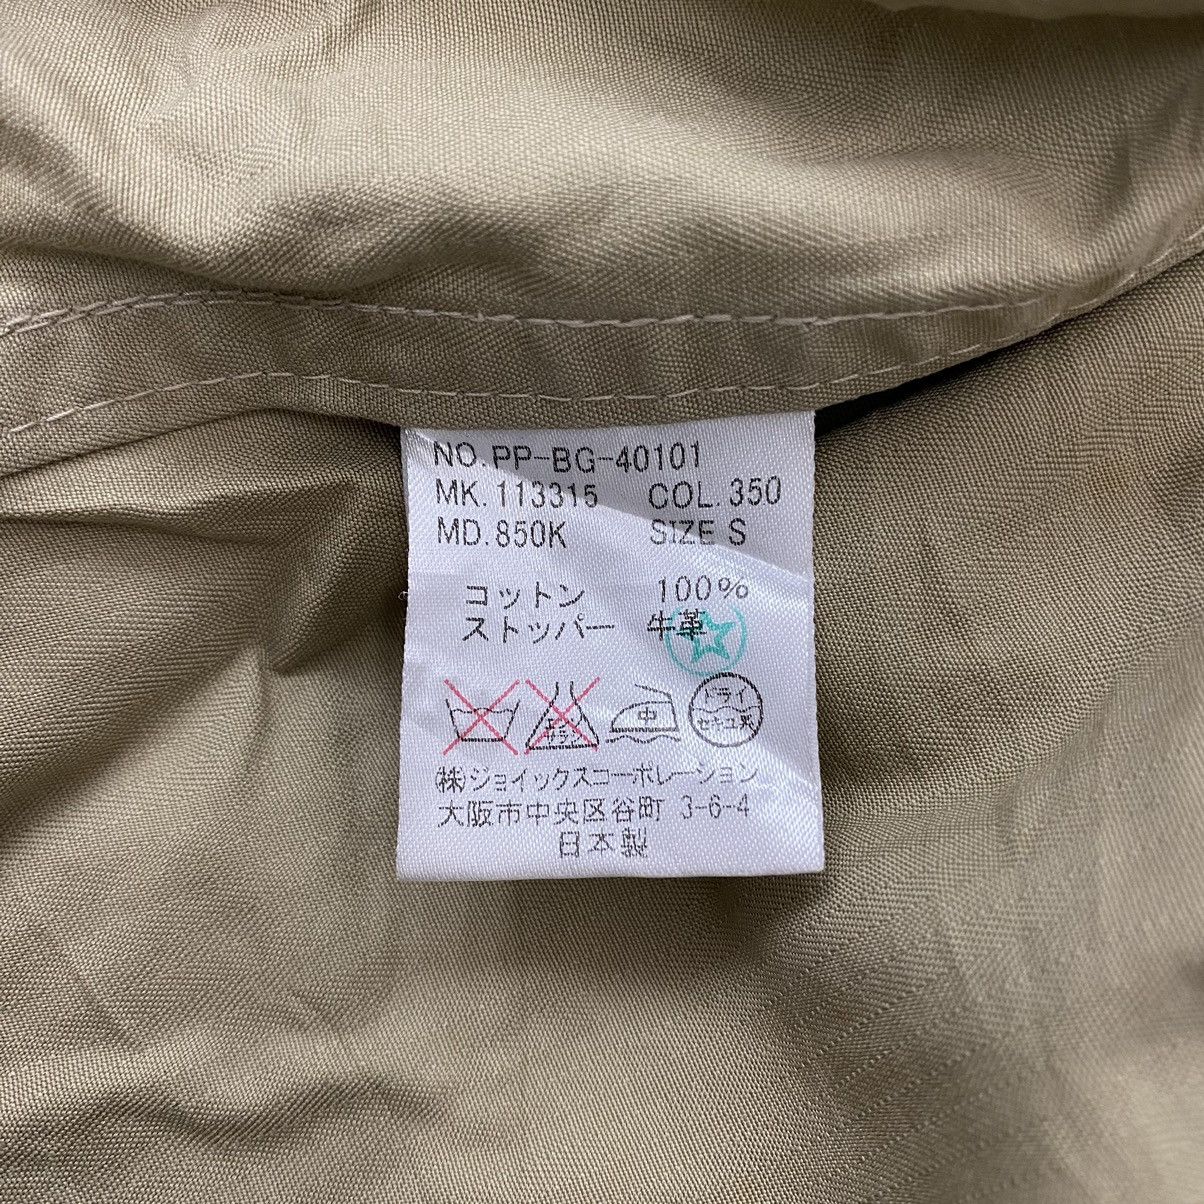 NO.PP-BG-40101
MK.113315 COL.350
MD.850K SIZE S
コットン 100%
ストッパー 牛革
エンソサラシ 中 ドライ セキユ系
(株)ジョイックスコーポレーション
大阪市中央区谷町 3-6-4
日本製